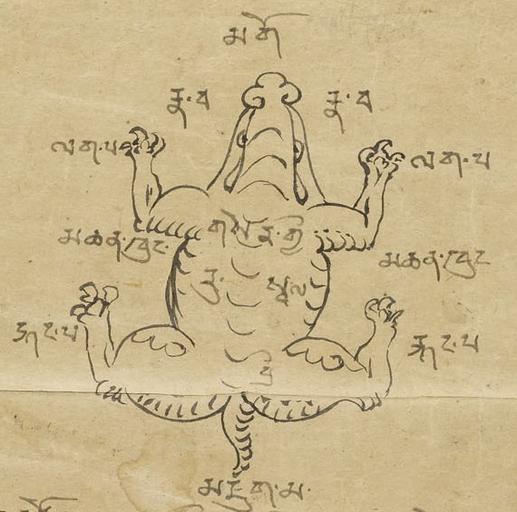 མགོ
རྣ་བ རྣ་བ
ལག་པ ལག་པ
མཆན་ཁུང་ མཆན་ཁུང
རུ་ སྦལ
རྐང་པ རྐང་པ
མཇུག་མ་